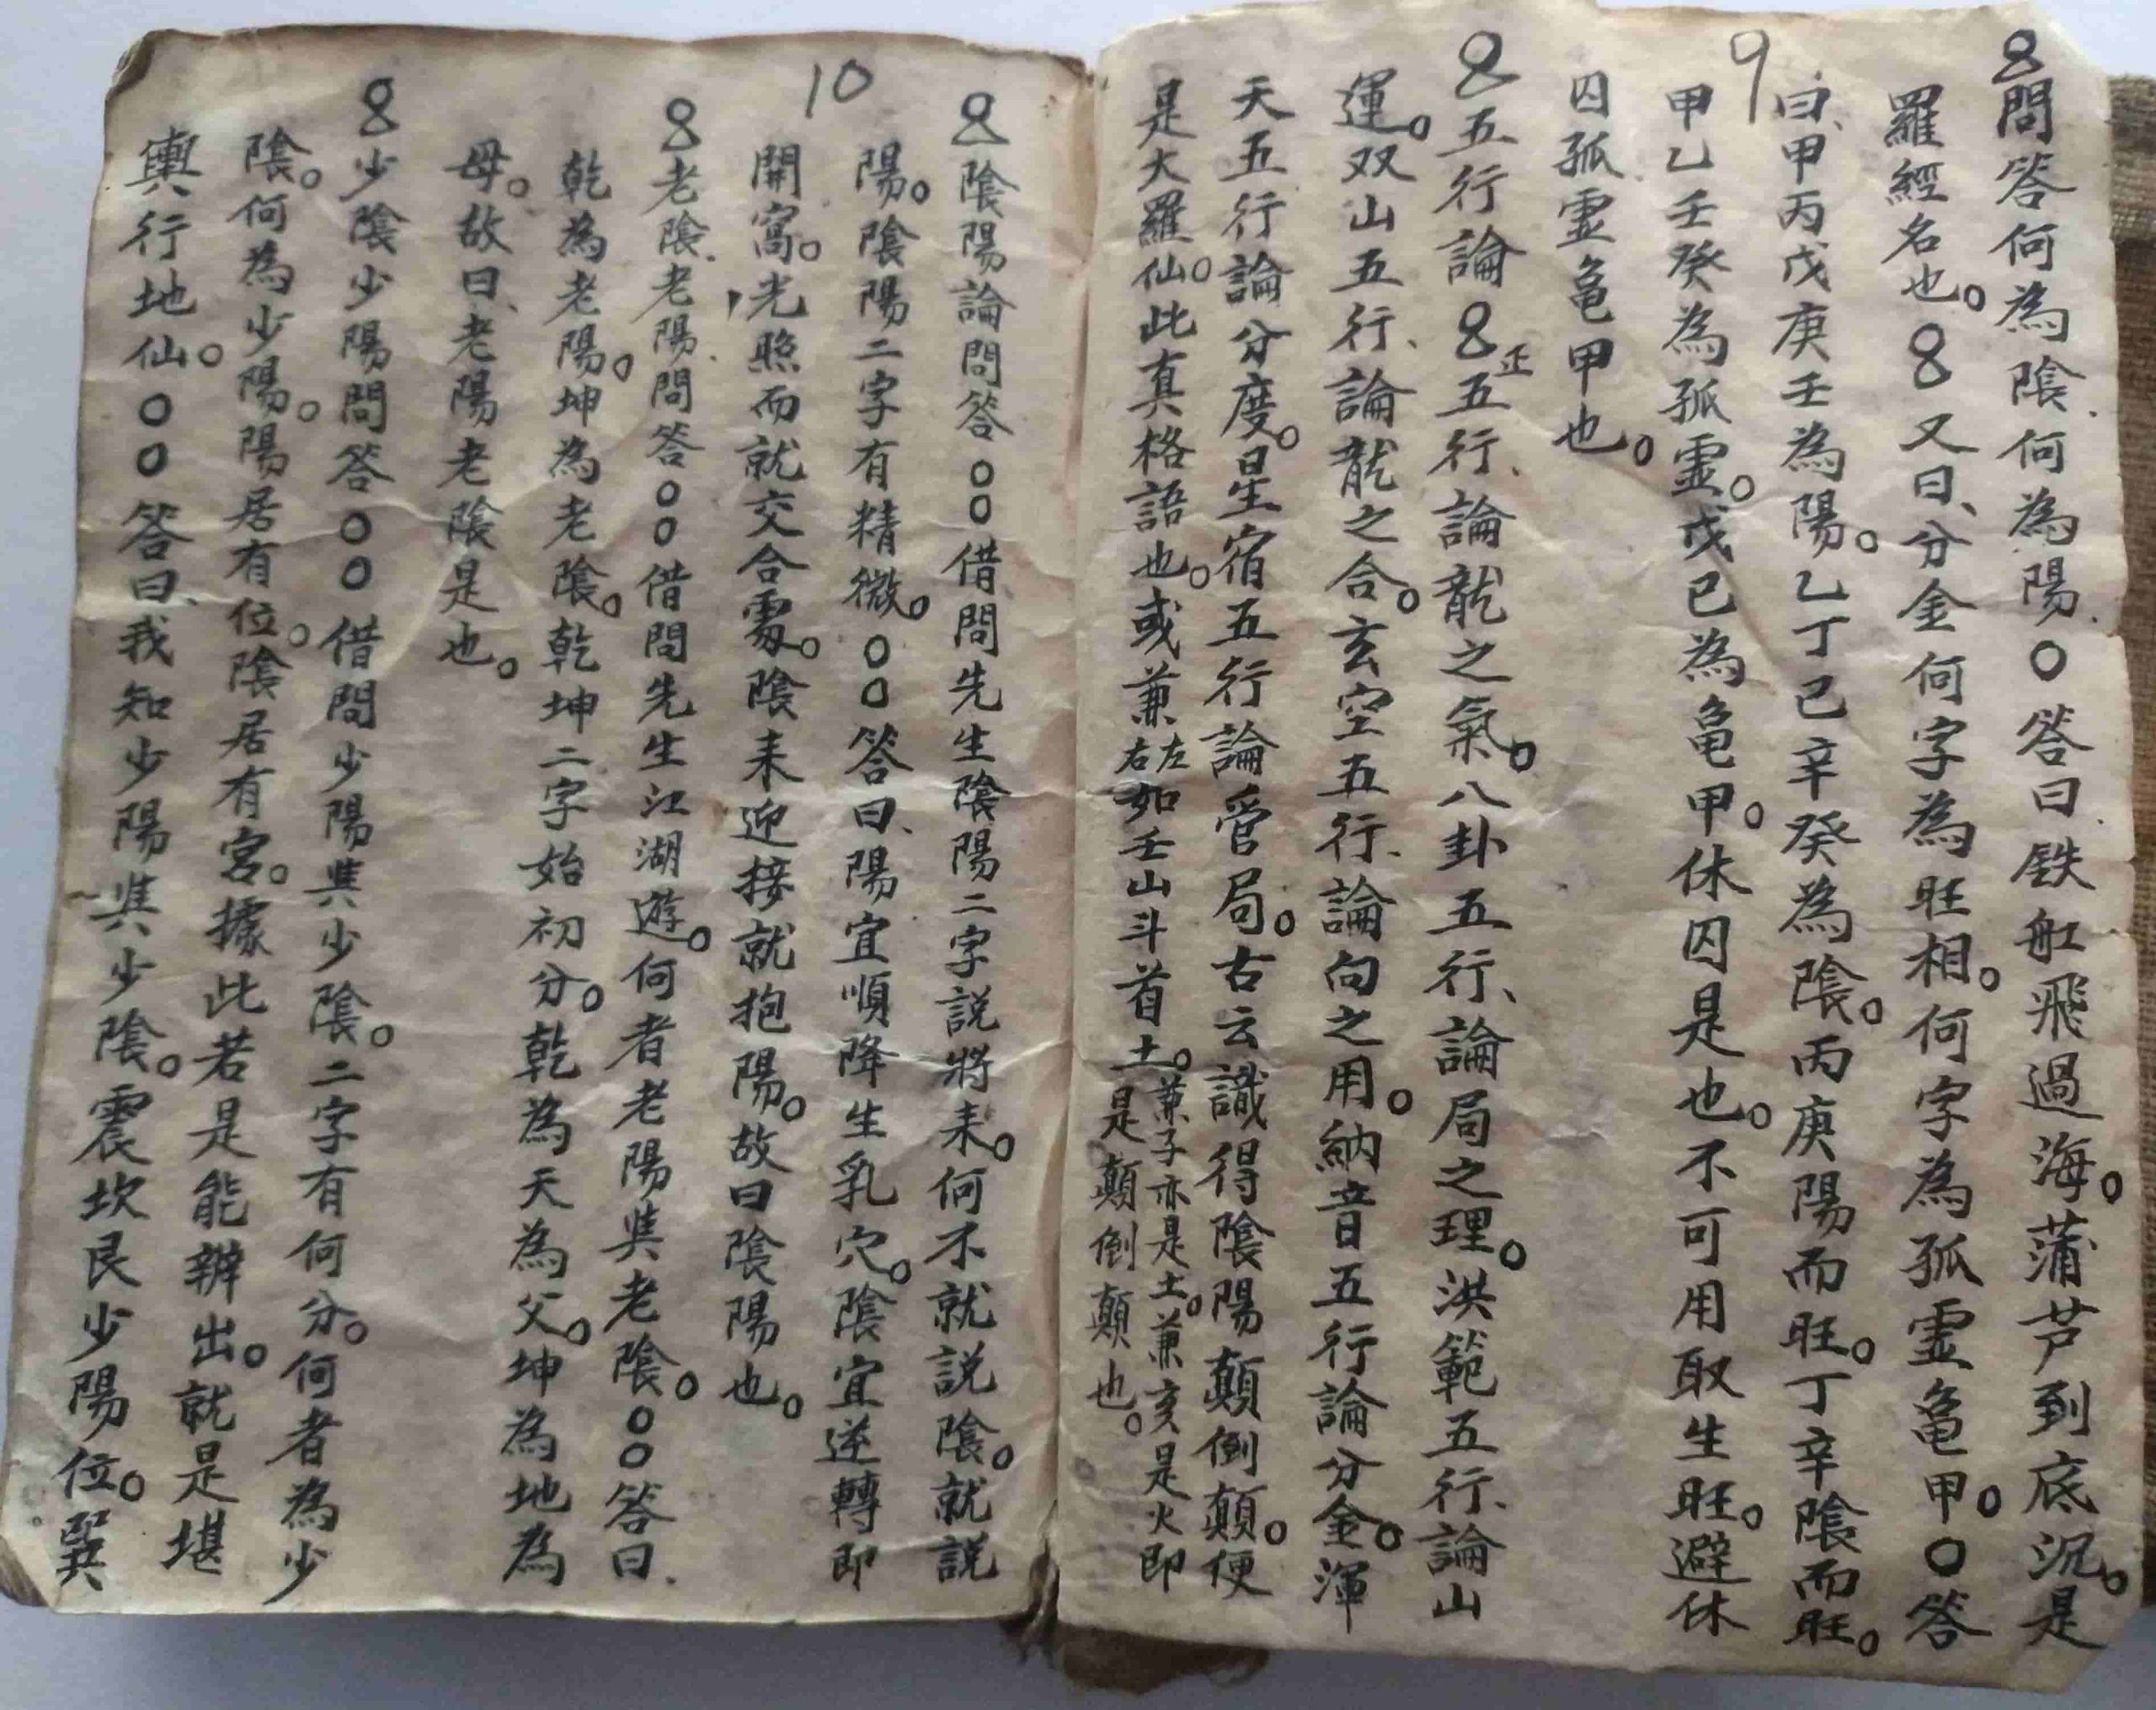 8問答何為陰.何為陽.〇答曰鉄船飛過海。蒲芦到底沉。是
羅經名也。8又曰、分金何字為旺相。何字為孤霊亀甲。〇答
9
曰、甲丙戊庚壬為陽。乙丁己辛癸為陰。丙庚陽而旺。丁辛陰而旺。
甲乙壬癸為孤霊。戊己為亀甲。休囚是也。不可用取生旺。避休
囚孤霊亀甲也。
8五行論8正五行、論龍之氣。八卦五行、論局之理。洪範五行、論山
運。双山五行、論龍之合。玄空五行、論向之用。納音五行論分金。渾
天五行論分度。星宿五行論管局。古云識得陰陽顛倒顛。便
是大羅仙。此真格語也。或兼左右如壬山斗首土。兼子亦是土。兼亥是火即是顛倒顛也。
8陰陽論問答〇〇借問先生陰陽二字説將来。何不就説陰。就説
陽。陰陽二字有精微。〇〇答曰、陽宜順降生乳穴。陰宜逆轉即
10
開窩。光照而就交合處。陰来迎接就抱陽。故曰陰陽也。
8老陰.老陽.問答〇〇借問先生江湖遊。何者老陽㒷老陰。〇〇答曰.
乾為老陽。坤為老陰。乾坤二字始初分。乾為天為父。坤為地為
母。故曰、老陽老陰是也。
8少陰少陽問答〇〇借問少陽㒷少陰。二字有何分。何者為少
陰。何為少陽。陽居有位。陰居有宮。據此若是能辦出。就是堪
輿行地仙。〇〇答曰、我知少陽㒷少陰。震坎艮少陽位。巽